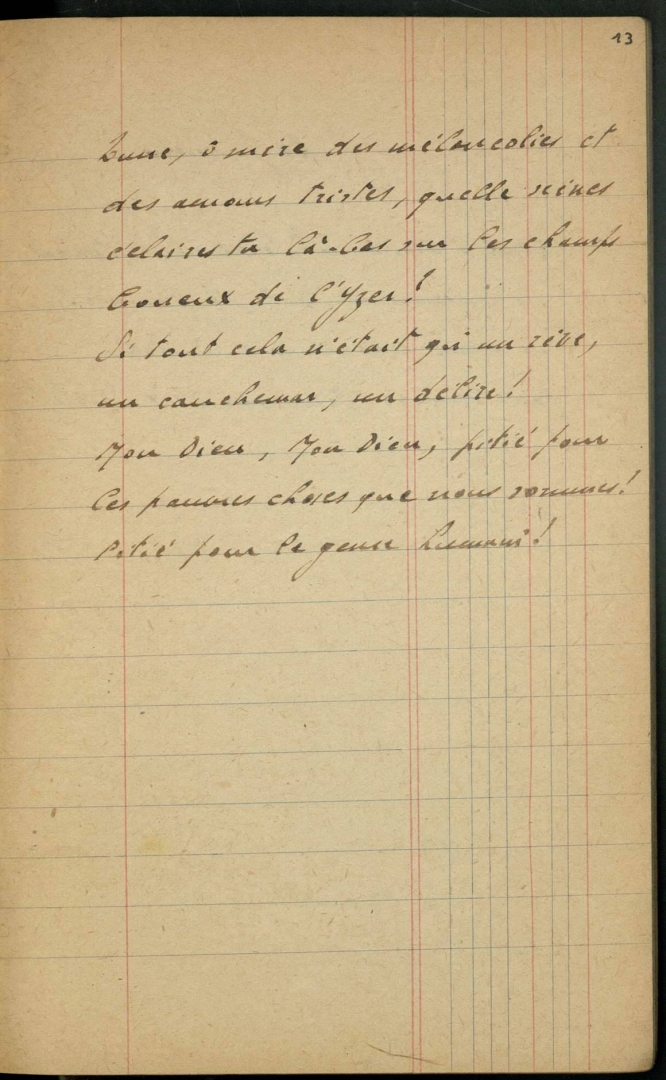 13
Lune, ô mère des mélancolies et
des amours tristes, quelle
éclaires tu là-bas sur les champs
boueux de l'Yzer!
Si tout cela n'était qu'un rêve,
un cauchemar, un délire!
Mon Dieu, Mon Dieu, pitié pour
les pauvres choses que nous sommes!
Pitié pour le genre humain!